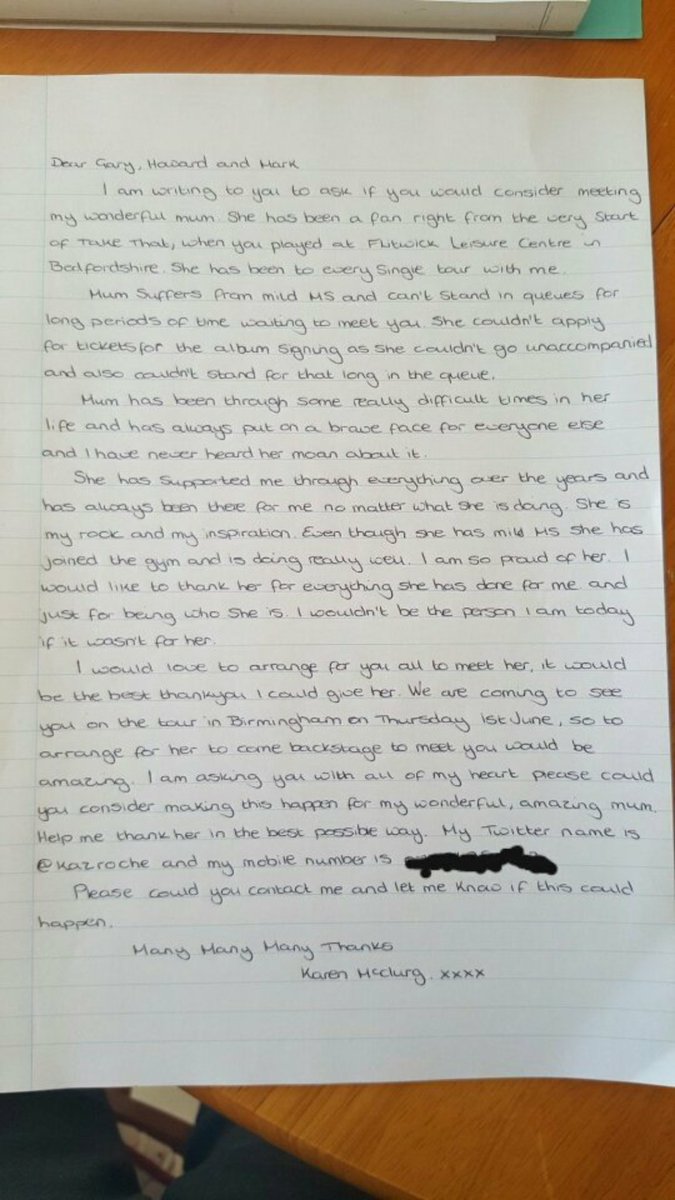 Dear Gary, Howard and Mark
I am writing to you to ask if you would consider meeting
my wonderful mum. She has been a fan right from the very start
of Take That, when you played at Flitwick Leisure Centre in
Bedfordshire. She has been to every single tour with me.
Mum suffers from mild MS and can't stand in queues for
long periods of time waiting to meet you. She couldn't apply
for tickets for the album signing as she couldn't go unaccompanied
and also couldn't stand for that long in the queue.
Mum has been through some really difficult times in her
life and has always put on a brave face for everyone else
and I have never heard her moan about it.
She has supported me through everything over the years and
has always been there for me no matter what she is doing. She is
my rock and my inspiration. Even though she has mild MS she has
joined the gym and is doing really well. I am so proud of her. I
would like to thank her for everything she has done for me and
just for being who she is. I wouldn't be the person I am today
if it wasn't for her.
I would love to arrange for you all to meet her, it would
be the best thankyou I could give her. We are coming to see
you on the tour in Birmingham on Thursday 1st June, so to
arrange for her to come backstage to meet you would be
amazing. I am asking you with all of my heart please could
you consider making this happen for my wonderful, amazing mum.
Help me thank her in the best possible way. My Twitter name is
@kazroche and my mobile number is
Please could you contact me and let me know if this could
happen.
Many Many Many Thanks
Karen McClurg. xxxx